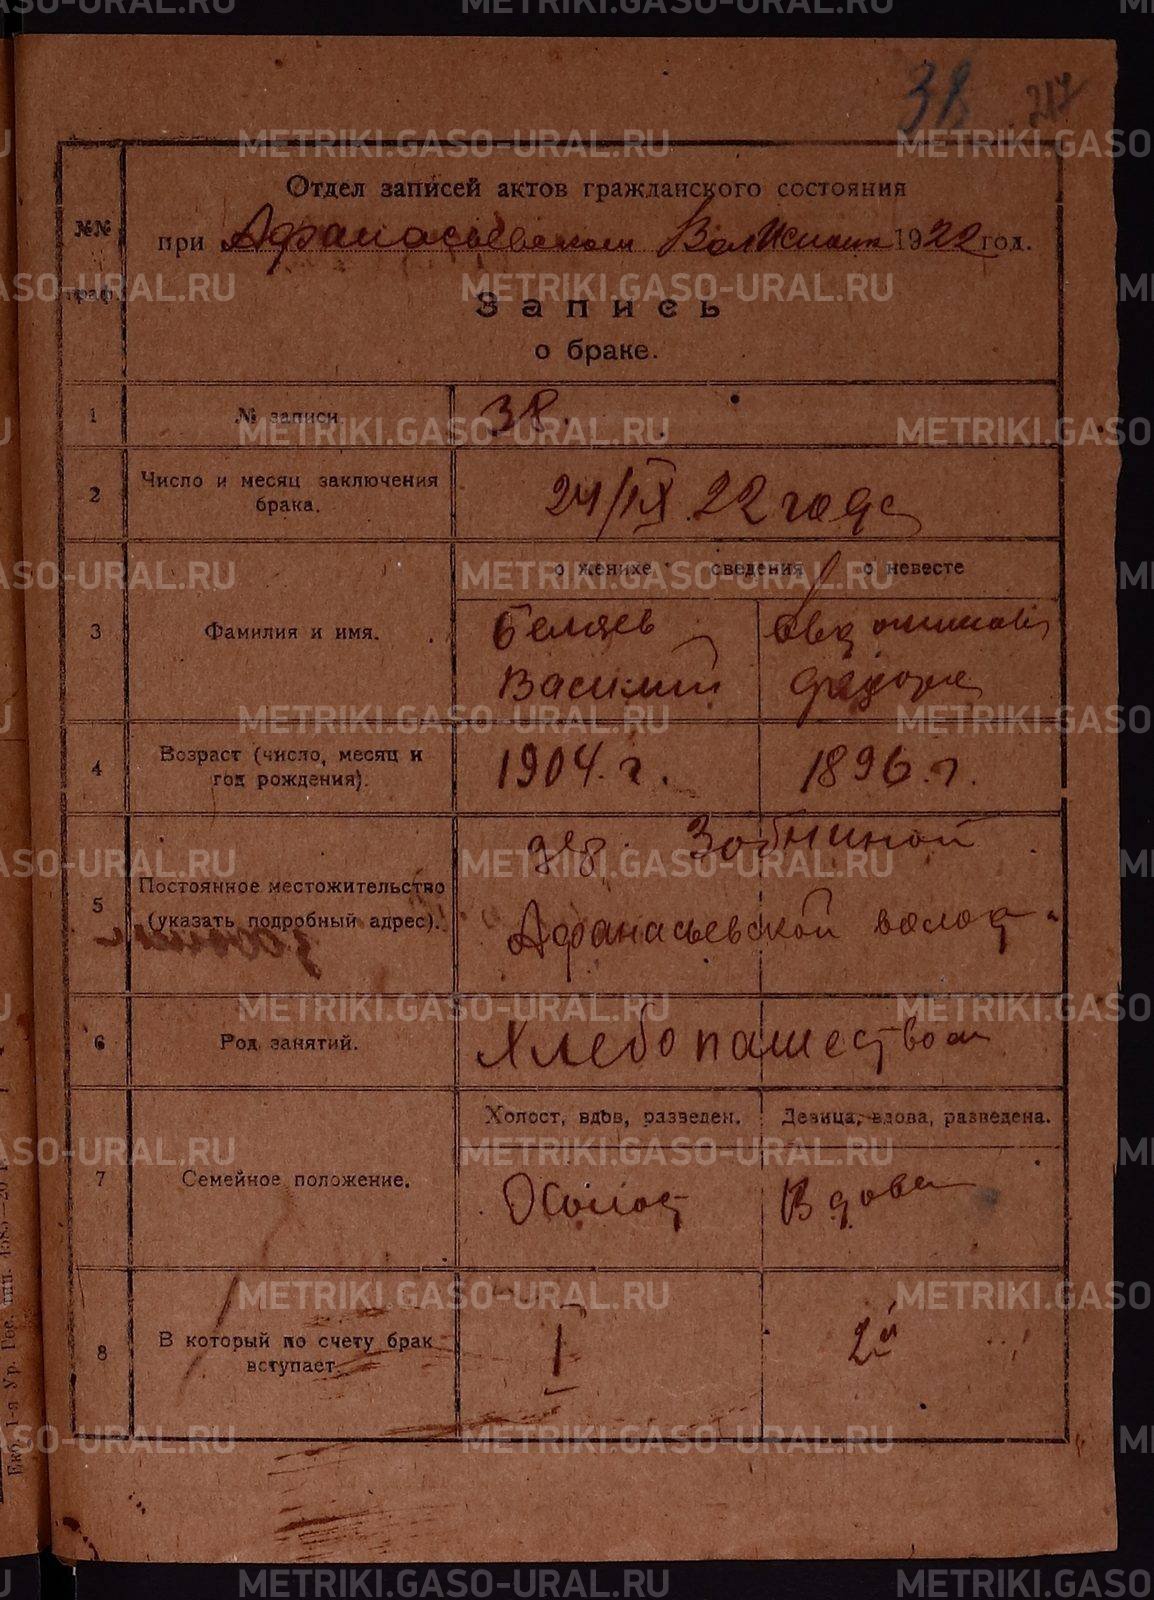 38
217
№№ граф.
Отдел записей актов гражданского состояния
при Афанасьевском Волжском 1922 год.
Запись
о браке.
1 № записи. 38.
2 Число и месяц заключения брака. 24/IX 22 года
о женихе сведения о невесте
3 Фамилия и имя.
Беляев
Василий
Федора
4 Возраст (число, месяц и год рождения). 1904. г. 1896. г.
5 Постоянное местожительство (указать подробный адрес).
дер. Зобниной
Афанасьевской волост
6 Род занятий. Хлебопашеством
Холост, вдов, разведен. Девица, вдова, разведена.
7 Семейное положение. Холост Вдова
8 В который по счету брак вступает. I 2й
METRIKI.GASO-URAL.RU